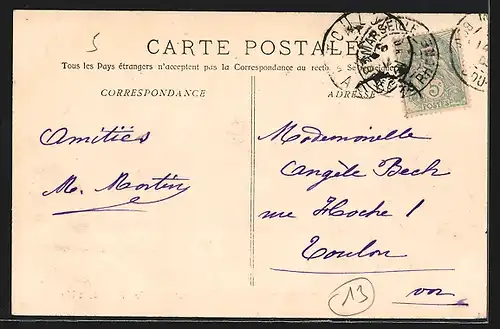 5
CARTE POSTALE
Tous les Pays étrangers n'acceptent pas la Correspondance au recto
CORRESPONDANCE
ADRESSE
MARSEILLE
POSTES
Amitiés
M. Martin
Mademoiselle
Angèle Bech
rue Hoche 1
Toulon
var
13